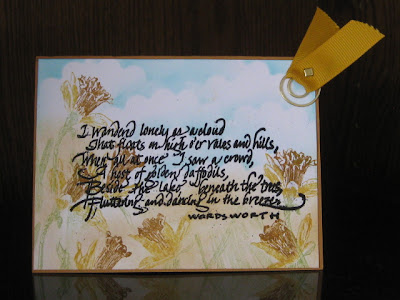 I wanderd lonely as a cloud
That floats on high o'er vales and hills,
When all at once I saw a crowd,
A host of golden daffodils,
Beside the lake, beneath the trees,
Fluttering and dancing in the breeze.
WORDSWORTH